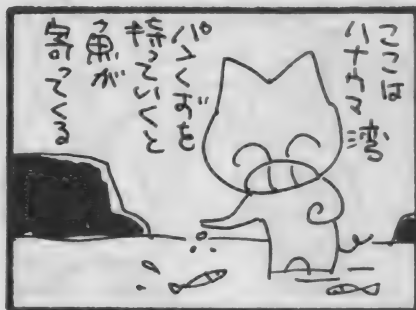 ここは
ハナウマ湾
パンくずを
持っていくと
魚が
寄ってくる